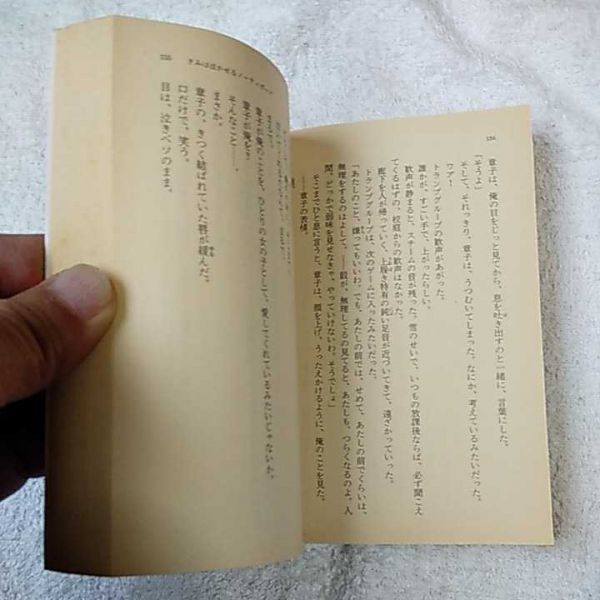 134
章子は、俺の目をじっと見てから、息を吐き出すのと一緒に、言葉にした。
「そうよ」
そして、それっきり、章子は、うつむいてしまった。なにか、考えているみたいだった。
ワアー
トランプグループの歓声があがった。
誰かが、すごい手で、上がったらしい。
歓声が静まると、スチームの音が残った。雪のせいで、いつもの放課後ならば、必ず聞こえ
てくるはずの、校庭からの歓声はなかった。
廊下を人が帰っていく、上履き特有の鈍い足音が近づいてきて、遠ざかっていった。
トランプグループは、次のゲームに入ったみたいだった。
「あたしのこと、嫌ってもいいわ。でも、あたしの前では、せめて、あたしの前でぐらいは、
無理をするのはよして。――毅が、無理してるの見てると、あたしも、つらくなるのよ。人
間、どっかで弱味を見せなきゃ、やっていけないわ。そうでしょ」
そこまでひと息に言うと、章子は、顔を上げ、うったえかけるように、俺のことを見た。
――章子の表情。
135
きみは泣かせるノーティボーイ
章子が俺のことを、ひとりの女の子として、愛してくれているみたいじゃないか。
章子が俺を?
そんなこと――。
まさか。
章子の、きつく結ばれていた唇が緩んだ。
口だけで、笑う。
目は、泣きベソのまま。